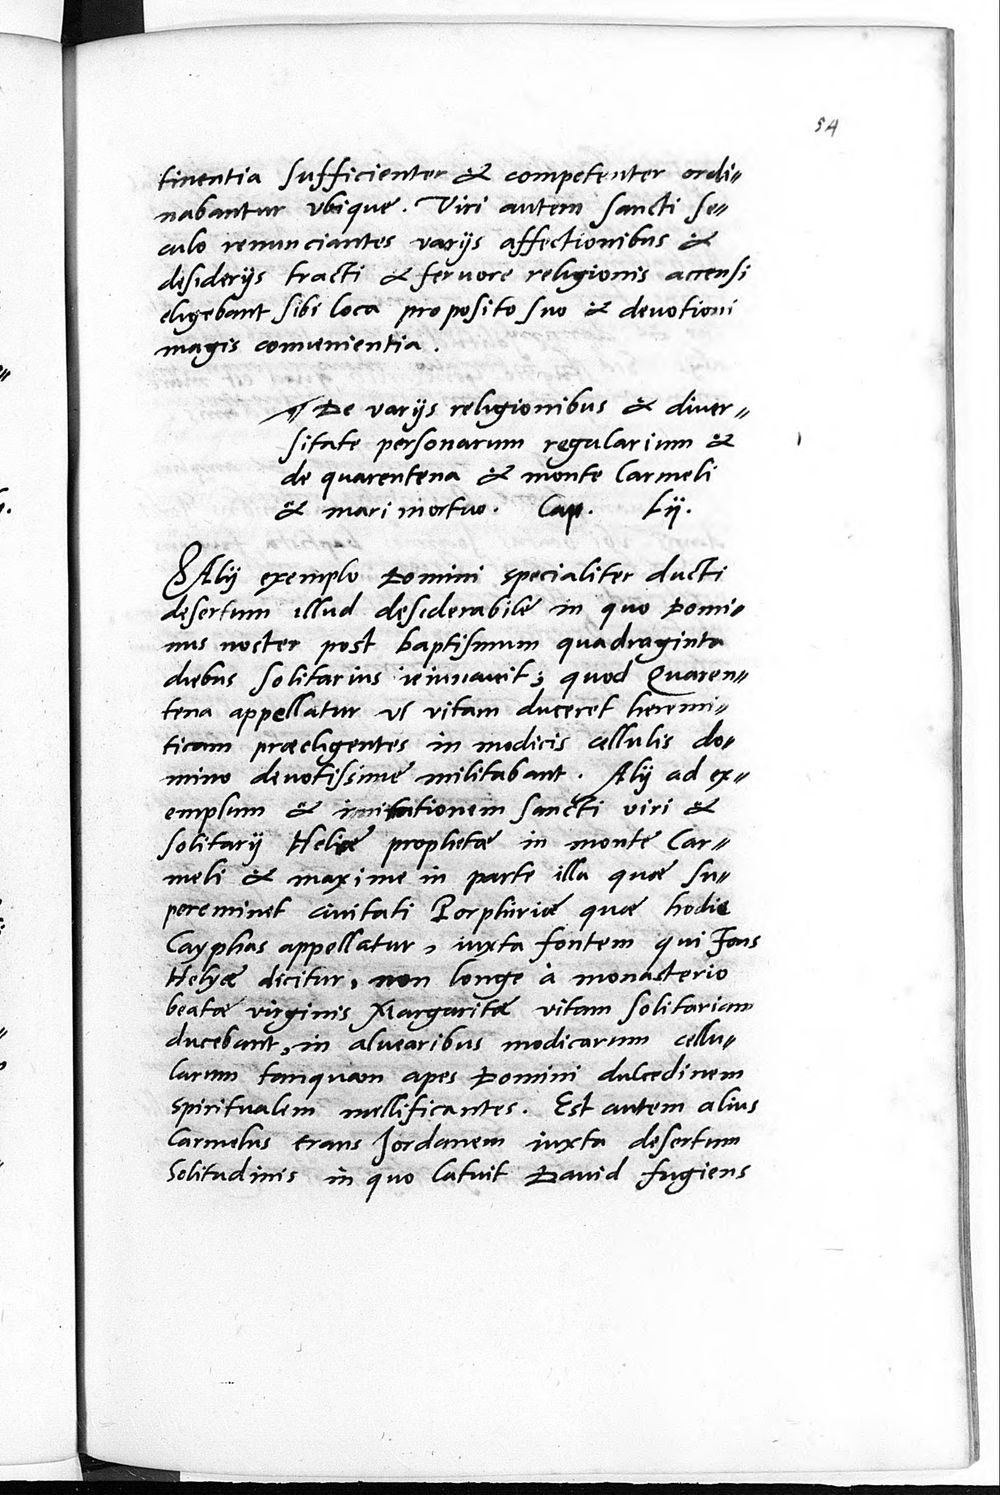 54
tinentia sufficienter & competenter ordi〃
nabantur vbique. Viri autem sancti se〃
culo renunciantes varijs affectionibus &
desiderijs tracti & feruore religionis accensi
eligebant sibi loca proposito suo & deuotioni
magis conuenientia.
¶ De varijs religionibus & diuer〃
sitate personarum regularium &
de quarentena & monte Carmeli
& mari mortuo. Cap. Lij.
Alij exemplo Domini specialiter ducti
desertum illud desiderabile in quo Domi〃
nus noster post baptismum quadraginta
diebus solitarius ieiunauit; quod Quaren〃
tena appellatur vt vitam duceret heremi〃
ticam præeligentes in modicis cellulis do〃
mino deuotissime militabant. Alij ad ex〃
emplum & imitationem sancti viri &
solitarij Heliæ prophetæ in monte Car〃
meli & maxime in parte illa quæ su〃
pereminet ciuitati Porphiriæ quæ hodie
Cayphas appellatur, iuxta fontem qui Fons
Helyæ dicitur, non longe à monasterio
beatæ virginis Margaritæ vitam solitariam
ducebant, in aluearibus modicarum cellu〃
larum tanquam apes Domini dulcedinem
spiritualem mellificantes. Est autem alius
Carmelus trans Jordanem iuxta desertum
Solitudinis in quo latuit Dauid fugiens